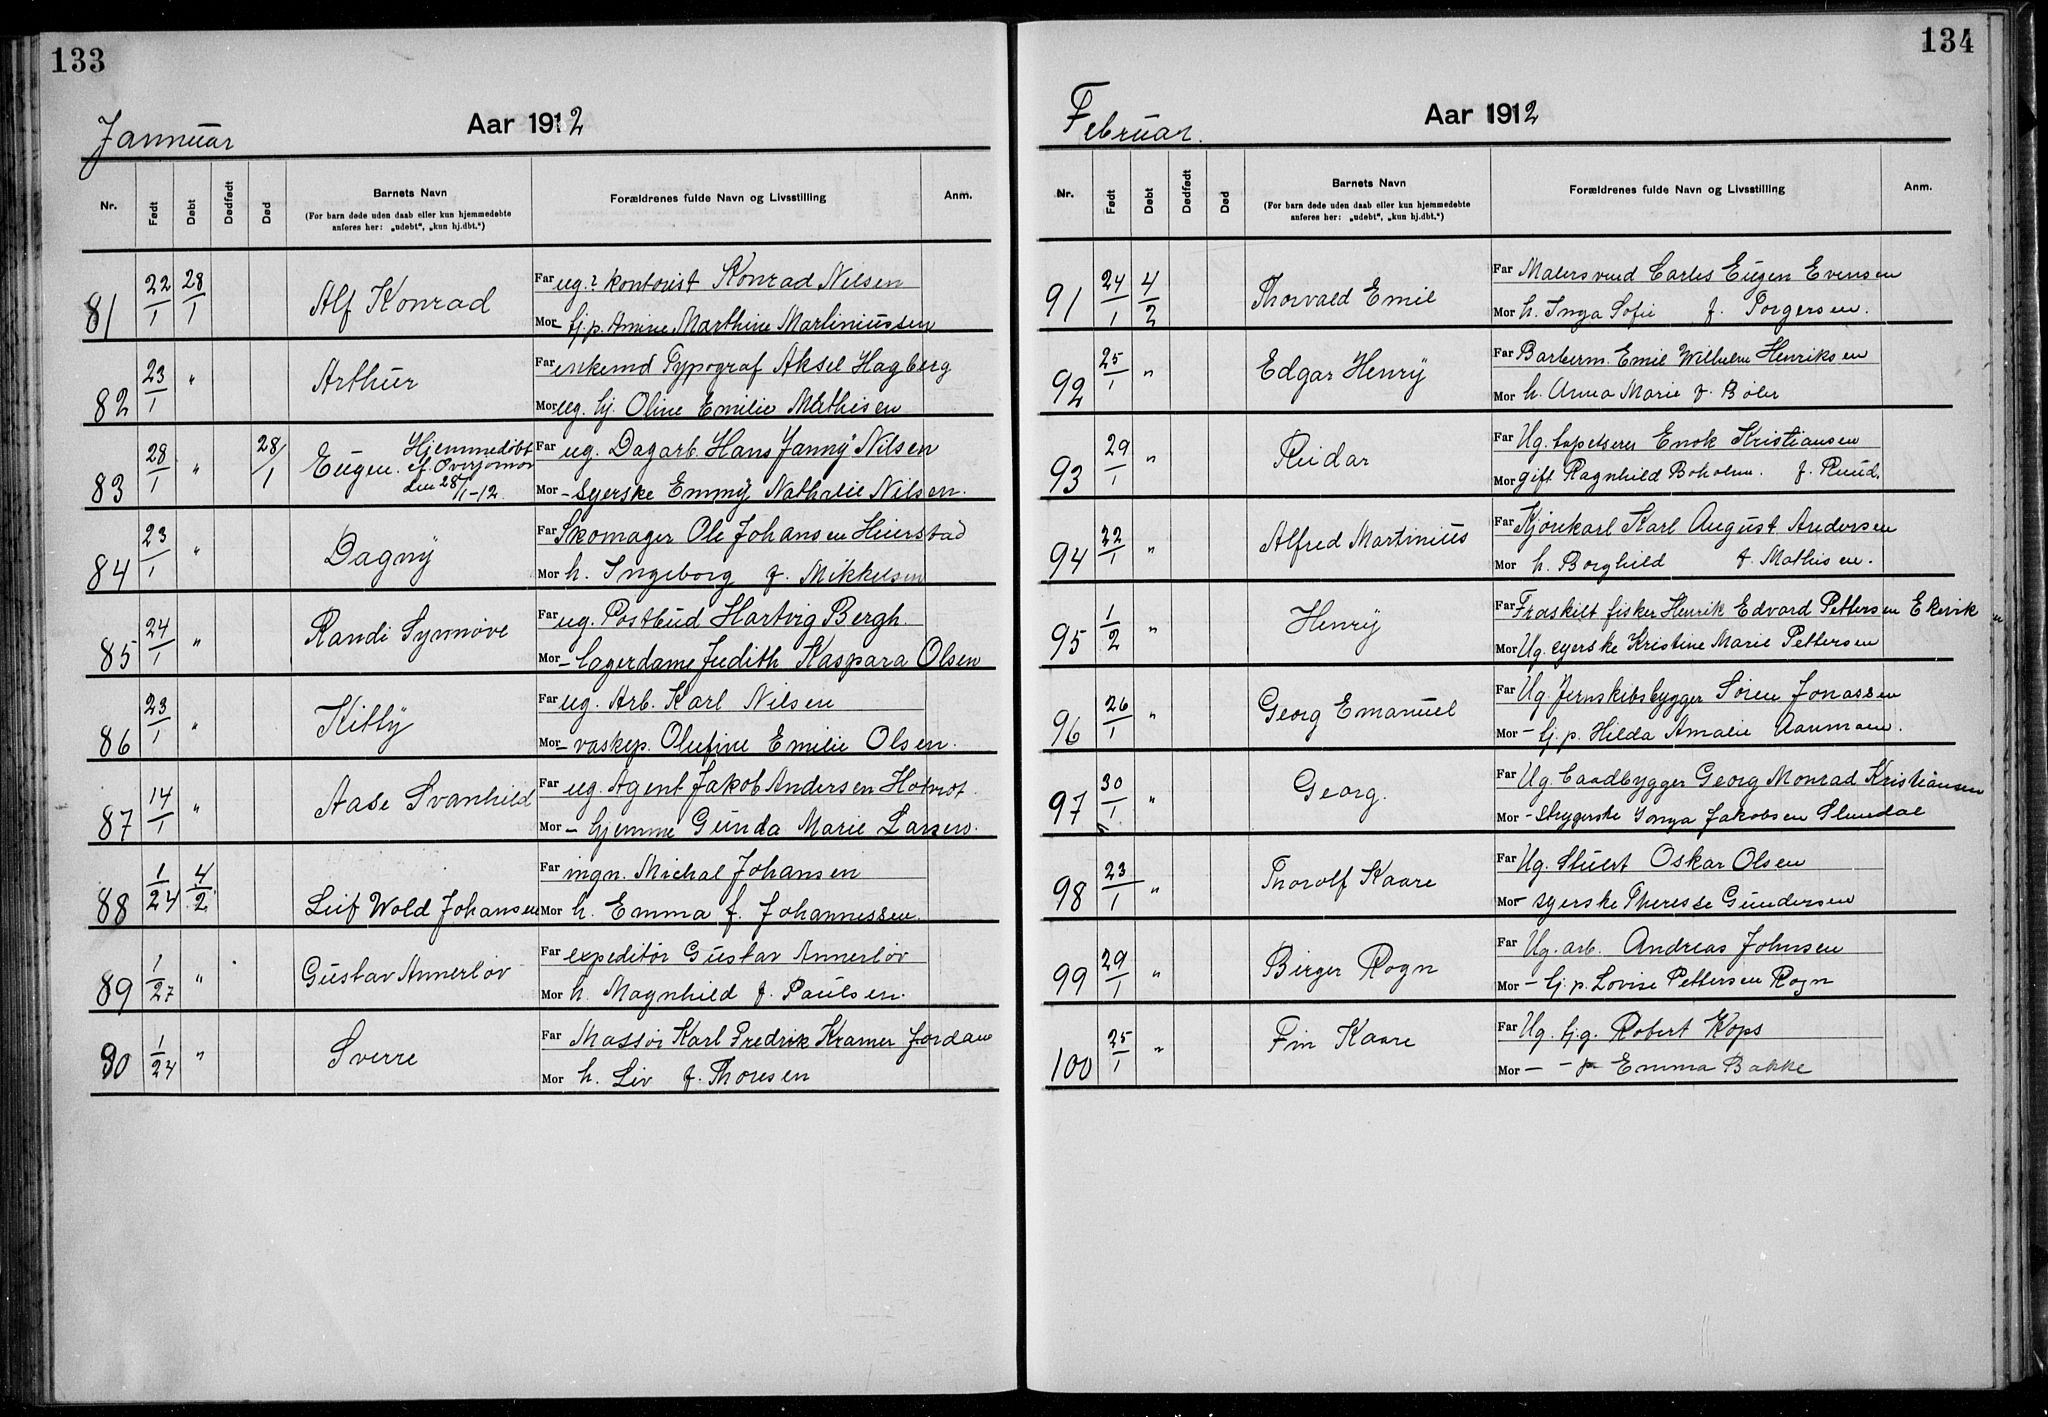 133
Januuar
Aar 1912
Nr. Født Døbt Dødfødt Død Barnets Navn Forældrenes fulde Navn og Livsstilling Anm.
(For barn døde uden daab eller kun hjemmedøbte
anføres her: „udøbt", „kun hj.dbt.")
81 22/1 28/1 Alf Konrad Far ug? kontorist Konrad Nilsen
Mor – tj.p. Amine Marthine Martiniussen
82 23/1 " Arthur Far enkemd Typograf Aksel Hagberg
Mor ug. tj. Oline Emilie Mathisen
83 28/1 " 28/1 Eugen. Hjemmedøbt
af Overjomor
den 28/1-12.
Far ug. Dagarb. Hans Janny Nilsen
Mor – Syerske Emmy Nathalie Nilsen.
84 23/1 " Dagny Far Skomager Ole Johansen
Mor h. Ingeborg f. Mikkelsen
85 24/1 " Randi Synnøve Far ug. Postbud Hartvig Bergh.
Mor – lagerdame Judith Kaspara Olsen
86 23/1 " Kitty Far ug. Arb. Karl Nilsen
Mor – vaskep. Olufine Emilie Olsen.
87 14/1 " Aase Svanhild Far ug Agent Jakob Andersen
Mor – hjemme Gunda Marie Larsen.
88 1/24 4/2 Leif Wold Johansen Far ingn. Michal Johansen
Mor h. Emma f. Johannessen.
89 1/27 " Gustav Annerløv Far expeditør Gustav Annerløv
Mor h. Magnhild f. Paulsen.
90 1/24 " Sverre Far Massør Karl Fredrik Kramer Jordan
Mor h. Liv f. Thoresen
134
Februar.
Aar 1912
Nr. Født Døbt Dødfødt Død Barnets Navn Forældrenes fulde Navn og Livsstilling Anm.
(For barn døde uden daab eller kun hjemmedøbte
anføres her: „udøbt", „kun hj.dbt.")
91 24/1 4/2 Thorvald Emil Far Malersvend Carles Eugen Evensen
Mor h. Inga Sofie f. Torgersen.
92 25/1 " Edgar Henry Far Barberm. Emil Wilhelm Henriksen
Mor h. Anna Marie f. Boler
93 29/1 " Reidar Far Ug. tapetserer Enok Kristiansen
Mor gift Ragnhild Boholm. f. Ruud.
94 22/1 " Alfred Martinius Far Kjørekarl Karl August Andersen
Mor h. Borghild f. Mathisen.
95 1/2 " Henry Far Fraskilt fisker Henrik Edvard Pettersen Ekevik
Mor Ug. syerske Kristine Marie Pettersen
96 26/1 " Georg Emanuel Far Ug. Jernskibsbygger Søren Jonassen
Mor – tj.p. Hilda Amalie
97 30/1 " Georg. Far Ug. baadbygger Georg Monrad Kristiansen
Mor – Strygerske Jakobsen
98 23/1 " Thorolf Kaare Far Ug. Stuert Oskar Olsen
Mor – syerske Theresse Gundersen
99 29/1 " Birger Rogn Far Ug. arb. Andreas Johnsen
Mor – tj.p. Lovise Pettersen Rogn
100 25/1 " Fin Kaare Far Ug. tj.g. Robert Kops
Mor – – p Emma Bakke